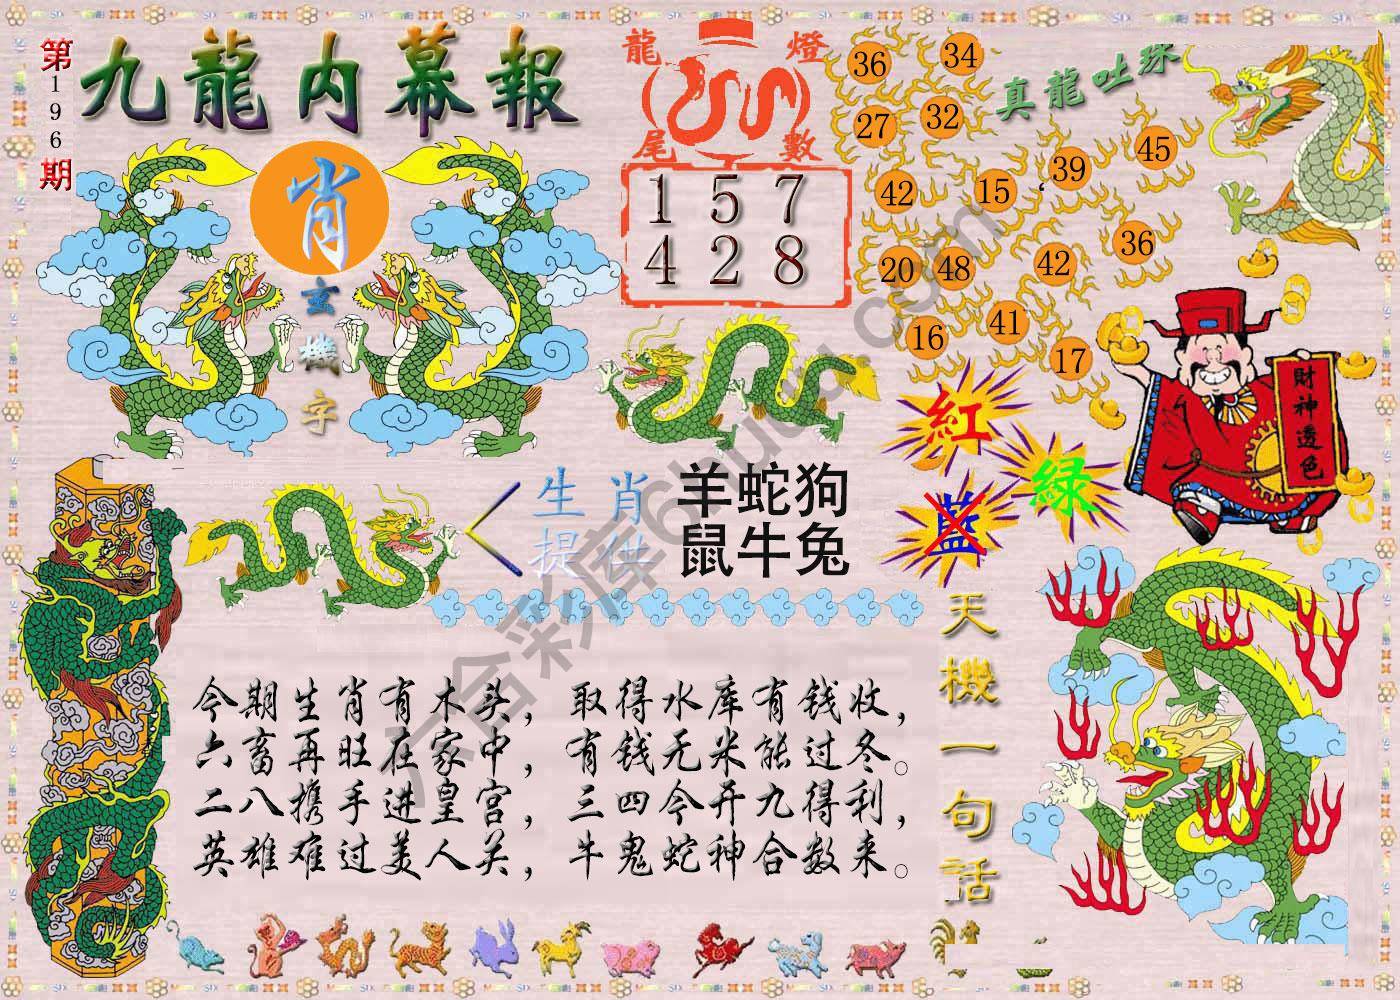 第196期
九龍内幕報
肖
玄機字
龍燈
尾數
1 5 7
4 2 8
真龍吐珠
36
34
27
32
42
15
39
45
20
48
42
36
16
41
17
財神透色
紅
綠
藍
生肖
提供
羊蛇狗
鼠牛兔
今期生肖有木头，取得水库有钱收，
六畜再旺在家中，有钱无米能过冬。
二八携手进皇宫，三四今开九得利，
英雄难过美人关，牛鬼蛇神合数来。
天機一句話
六合彩库6huu.com